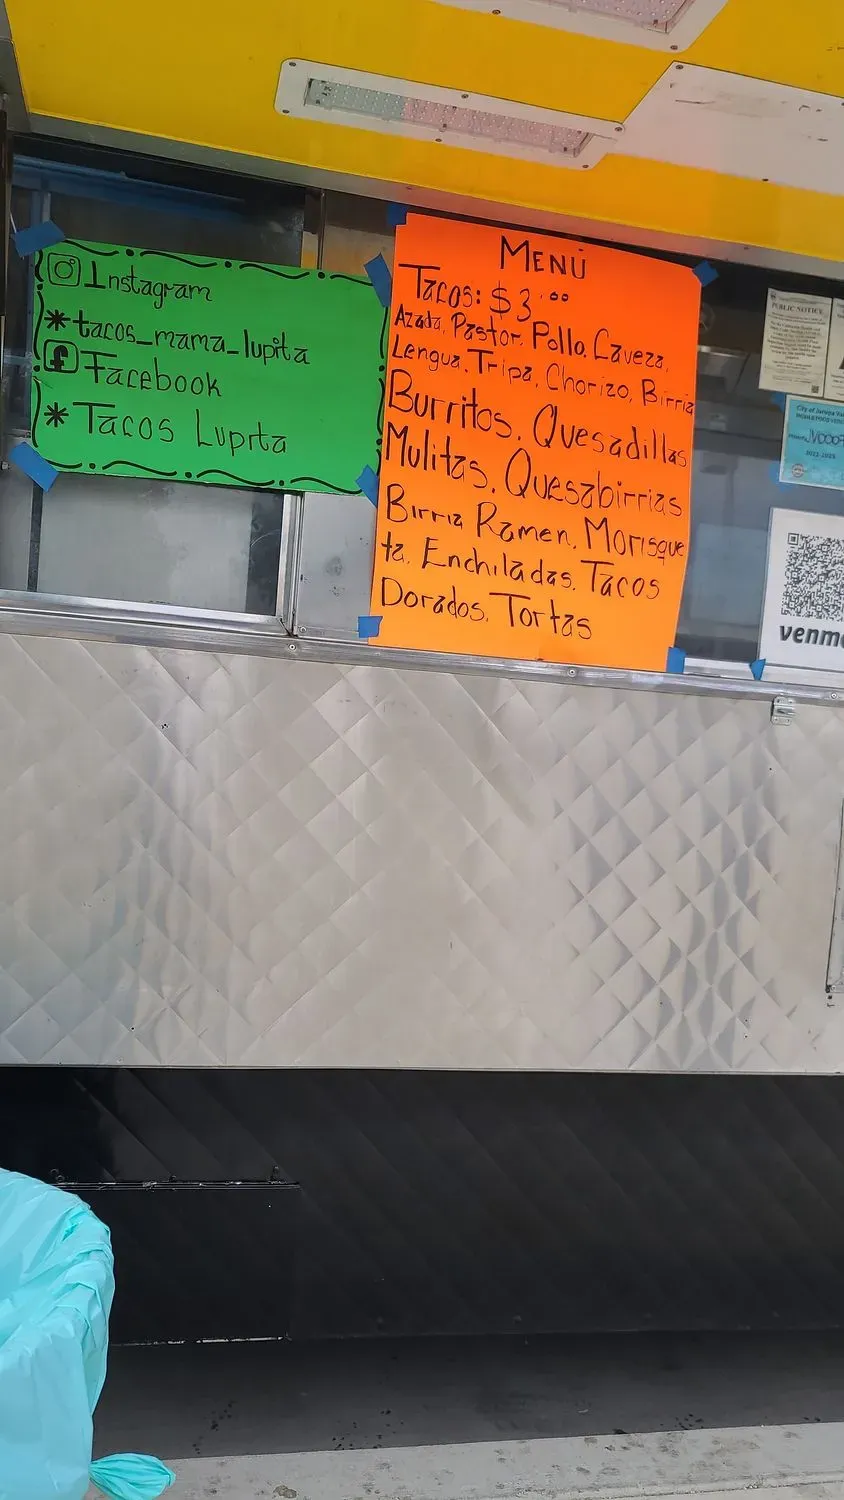 Instagram
*tacos_mama_lupita
Facebook
*Tacos Lupita
MENÚ
Tacos: $3.00
Azada, Pastor, Pollo, Caveza,
Lengua, Tripa, Chorizo, Birria
Burritos, Quesadillas
Mulitas, Quesabirrias
Birria Ramen, Morisque
ta, Enchiladas, Tacos
Dorados, Tortas
PUBLIC NOTICE
City of Jurupa Val
2022-2023
venmo